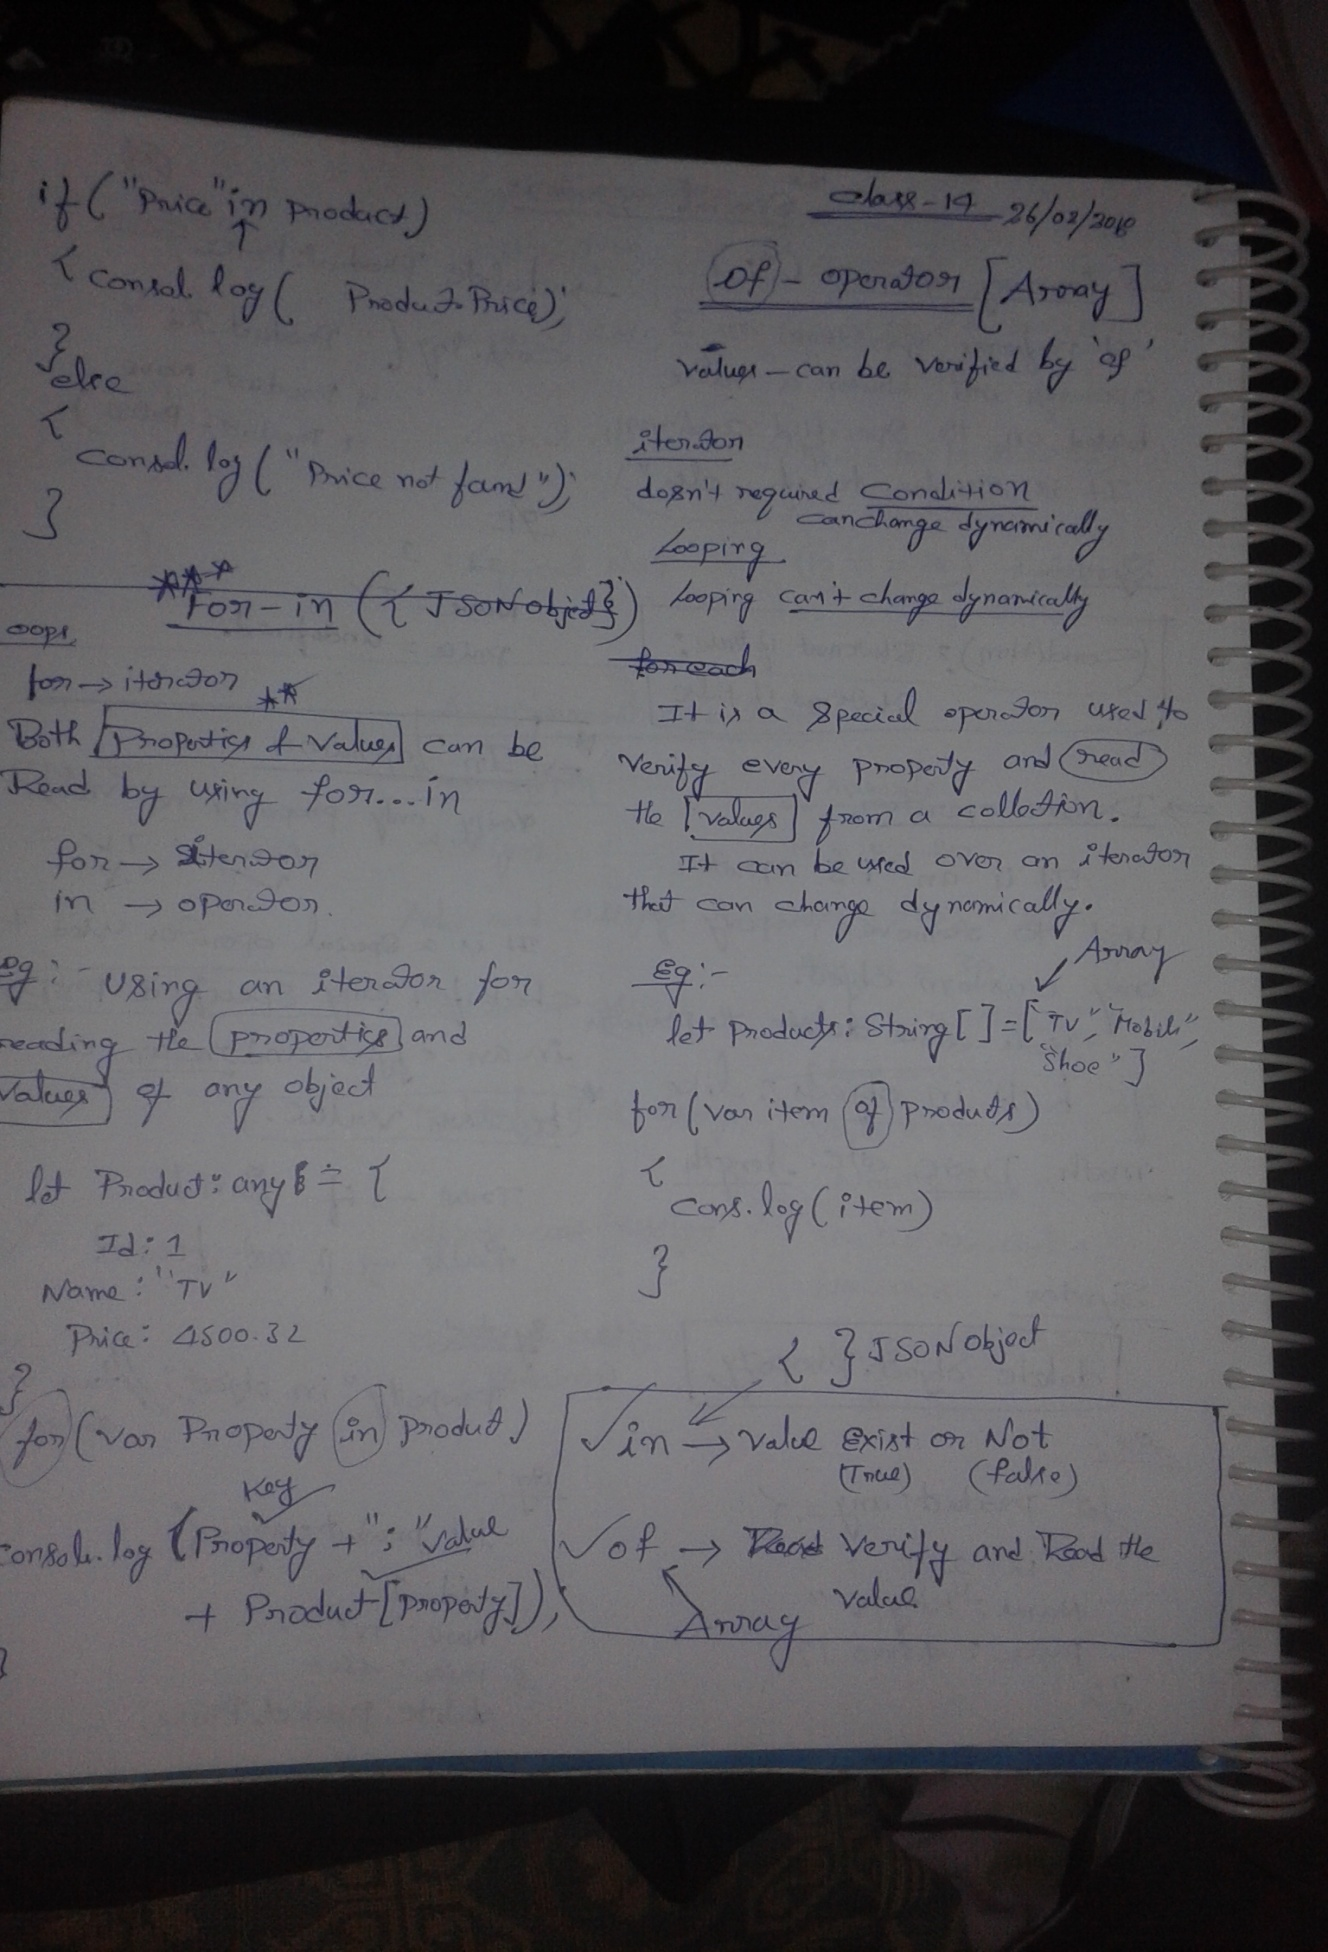 if ("Price" in Product)
{
Consol.log( Product.Price);
}
else
{
Consol.log("Price not fand");
}
*** for-in ({JSON object})
oops
for → iterator
**
Both Properties & Values can be
Read by using for...in
for → iterator
in → operator.
Eg:- Using an iterator for
reading the properties and
values of any object
let Product: any = {
Id: 1
Name: "TV"
Price: 4500.32
}
for (var Property in Product)
Key
console.log (Property + ": " value
+ Product[property]);
}
Class-14 26/02/2018
of - operator [Array]
Values - can be verified by 'of'
iterator
dosn't required Condition
can change dynamically
Looping
Looping can't change dynamically
for each
It is a special operator used to
verify every property and read
the values from a collection.
It can be used over an iterator
that can change dynamically.
Array
Eg:-
let Products: String[] = ["TV", "Mobile",
"Shoe"]
for (var item of products)
{
cons.log(item)
}
{ } JSON object
in → Value Exist or Not
(True) (false)
of → Read Verify and Read the
value
Array